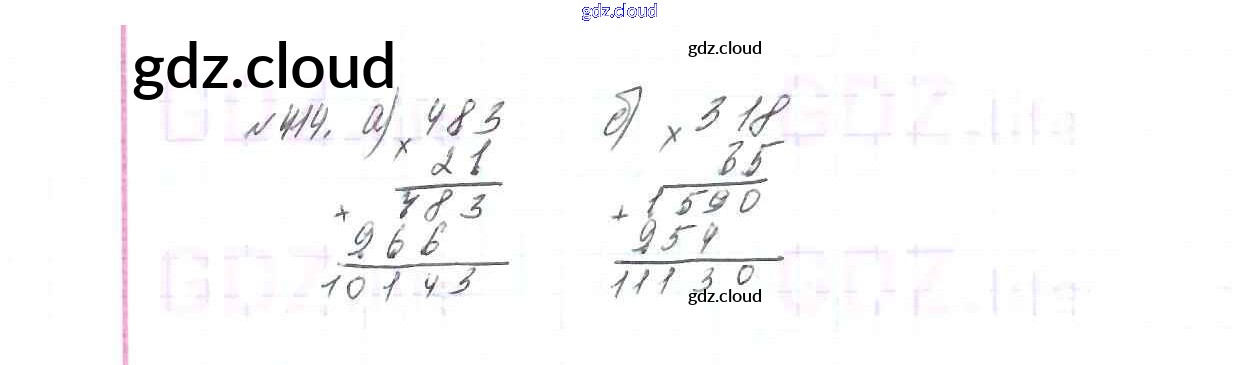 gdz.cloud
gdz.cloud
gdz.cloud
№414. а) × 483
21
+ 483
966
10143
б) × 318
35
+ 1590
954
11130
gdz.cloud